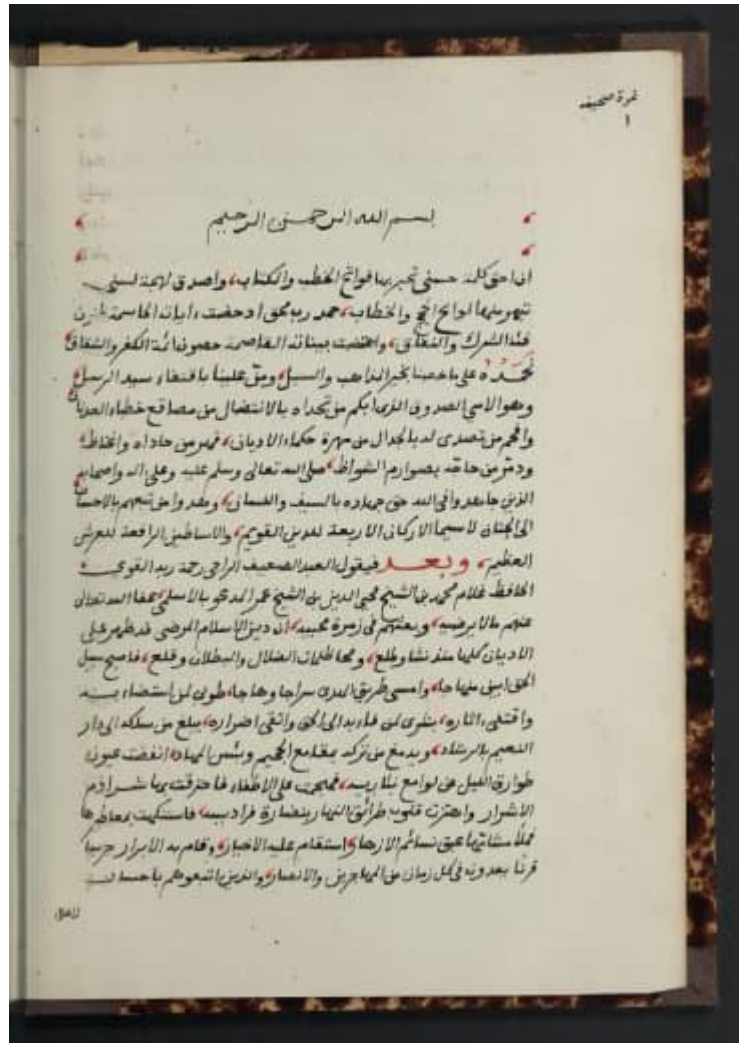 نمرة صحيفه
١
بسم الله الرحمن الرحيم
ان احق كلمة حسنى تحبر بها فواتح الخطب والكتاب، واصدق لهجة لسنى
تبهر منها لوايح الحجج والخطاب، حمد رب محق ادحضت اياته الحاسمة
فئة الشرك والنفاق، بيناته القاصمة حصون الكفر والشقاق
نحمده على ما خصنا بخير المذاهب والسبل، ومن علينا باقتفاء سيد الرسل
وهو الامي الصدوق الذي ابكم من تحداه بالانتضال من مصاقع خطباء
وافحم من تصدى له بالجدال من مهرة حكماء الاديان، فهو من حاداه
ودمر من حاقه بصوارم الشواظ، صلى الله تعالى وسلم عليه وعلى اله واصحابه
الذين جاهدوا في الله حق جهاده بالسيف واللسان، ومن تبعهم بالاحسان
الى الجنان لاسيما الاركان الاربعة للدين القويم، والاساطين الرافعة للعرش
العظيم، وبعد فيقول العبد الضعيف الراجي رحمة ربه القوي
الحافظ غلام محمد بن الشيخ محيي الدين بن الشيخ عمر المدعو بالاسلمي، عفا الله تعالى
عنهم ما لا يرضيه، وبعثهم في زمرة محبيه، ان دين الاسلام المرضي قد ظهر على
الاديان كلها منذ نشا وطلع، ومحا ظلمات الضلال والبطلان وقلع، فاصبح سبيل
الحق ابين منهاجا، وامسى طريق الهدى سراجا وهاجا، طوبى لمن استضاء به
واقتفى اثاره، بشرى لمن فاء به الى الحق واتقى اضراره، يبلغ من سلكه الى دار
النعيم بالرشاد، ويدمغ من تركه بمقامع الجحيم وبئس المهاد، انغضت عيون
طوارق الليل عن لوامع، على الاطفاء فاحترقت بها شراذم
الاشرار واهتزت قلوب طرائق النهار بنضارة، فاستنكهت
عبق نسائم الازهار، استقام عليه الاخيار، وقام به الابرار
قرنا بعد قرن في كل زمان من المهاجرين والانصار، والذين اتبعوهم باحسان